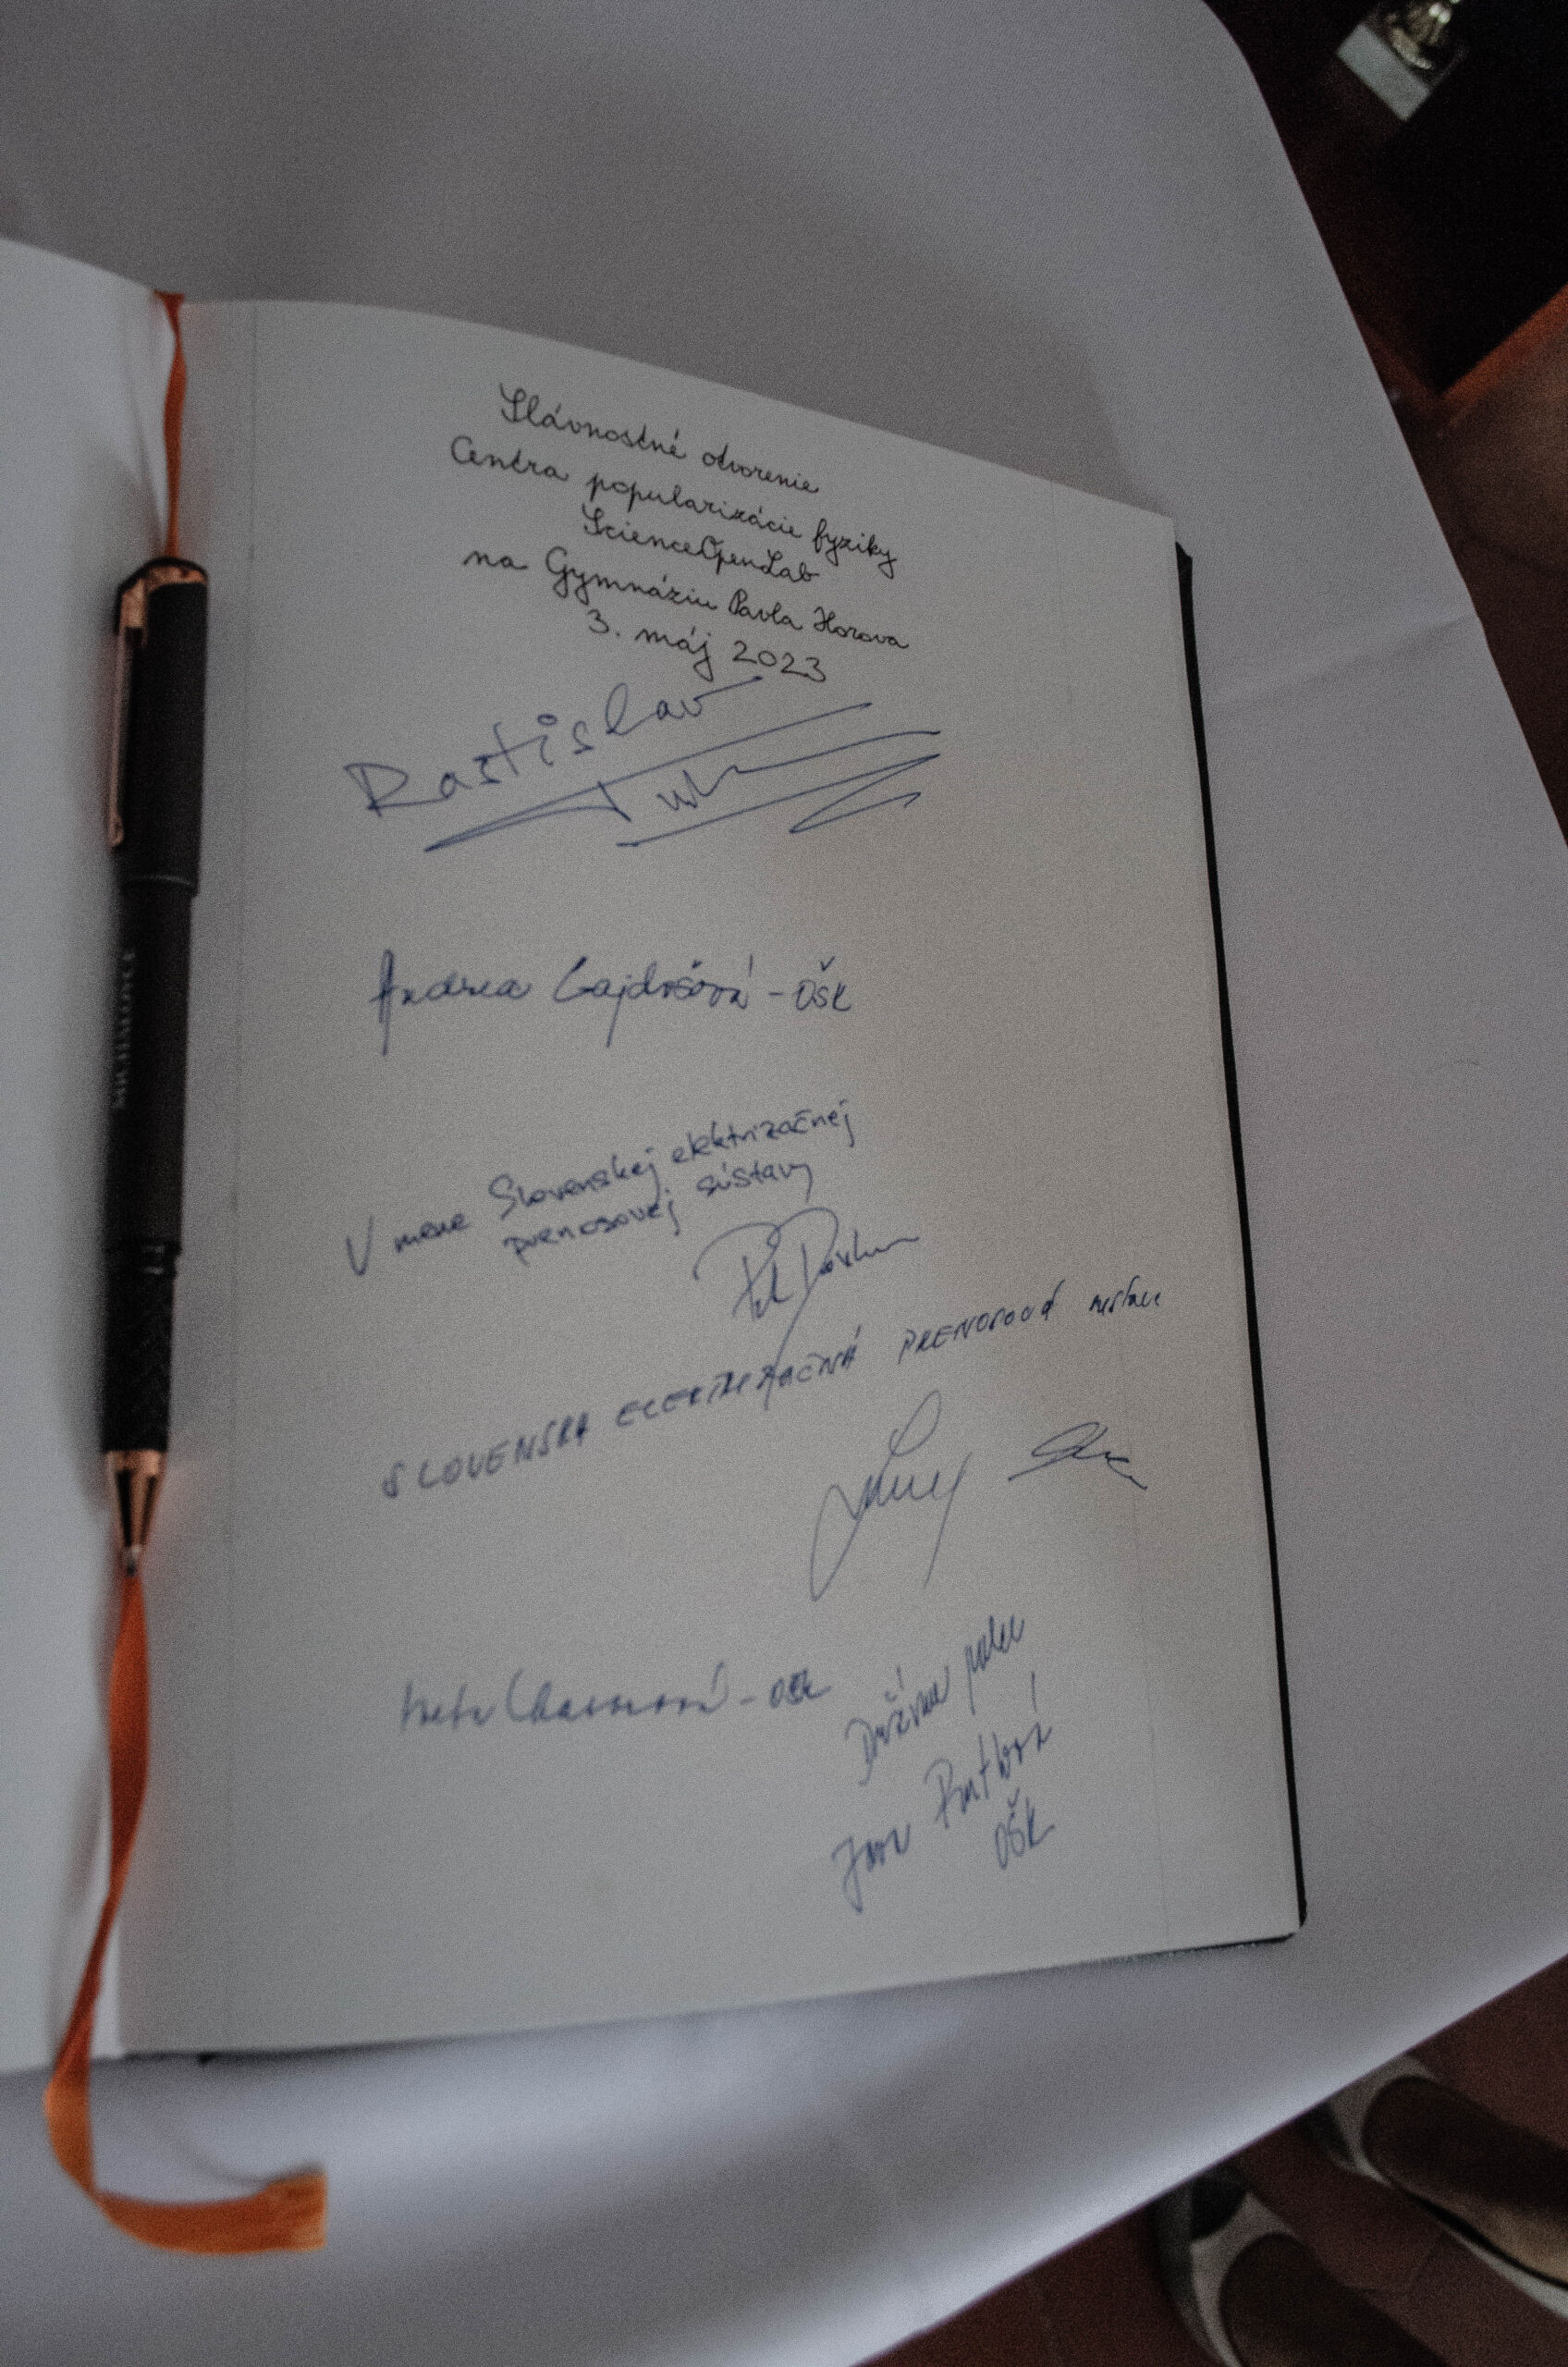 Slávnostné otvorenie
Centra popularizácie fyziky
ScienceOpenLab
na Gymnáziu Pavla Horova
3. máj 2023
Rastislav
Andrea Gajdošová - OŠK
V mene Slovenskej elektrizačnej
prenosovej sústavy
SLOVENSKA ELEKTRIZAČNÁ PRENOSOVÁ
- OŠK
Držíme palce
Jana
OŠK